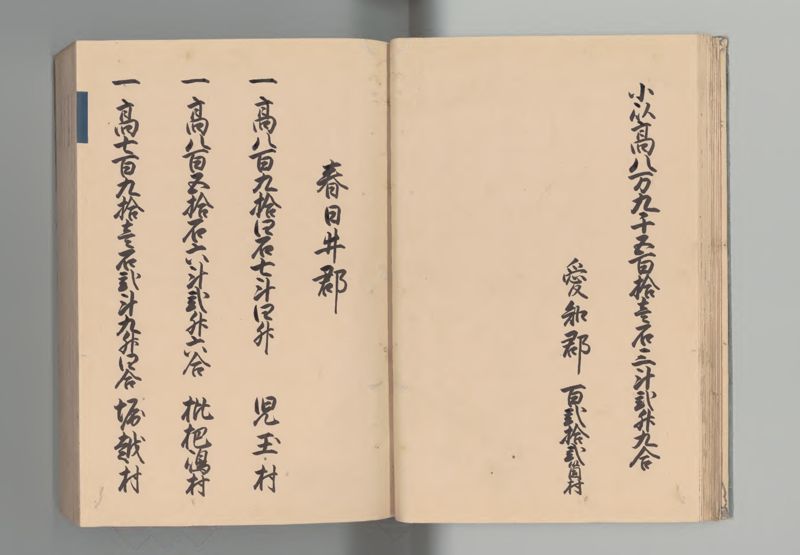 小以高八万九千五百拾壱石三斗弐升九合
愛知郡 百弐拾弐箇村
春日井郡
一 高八百九拾四石七斗四升 児玉村
一 高八百五拾石六斗弐升六合 枇杷嶋村
一 高七百九拾壱石弐斗九升四合 堀越村